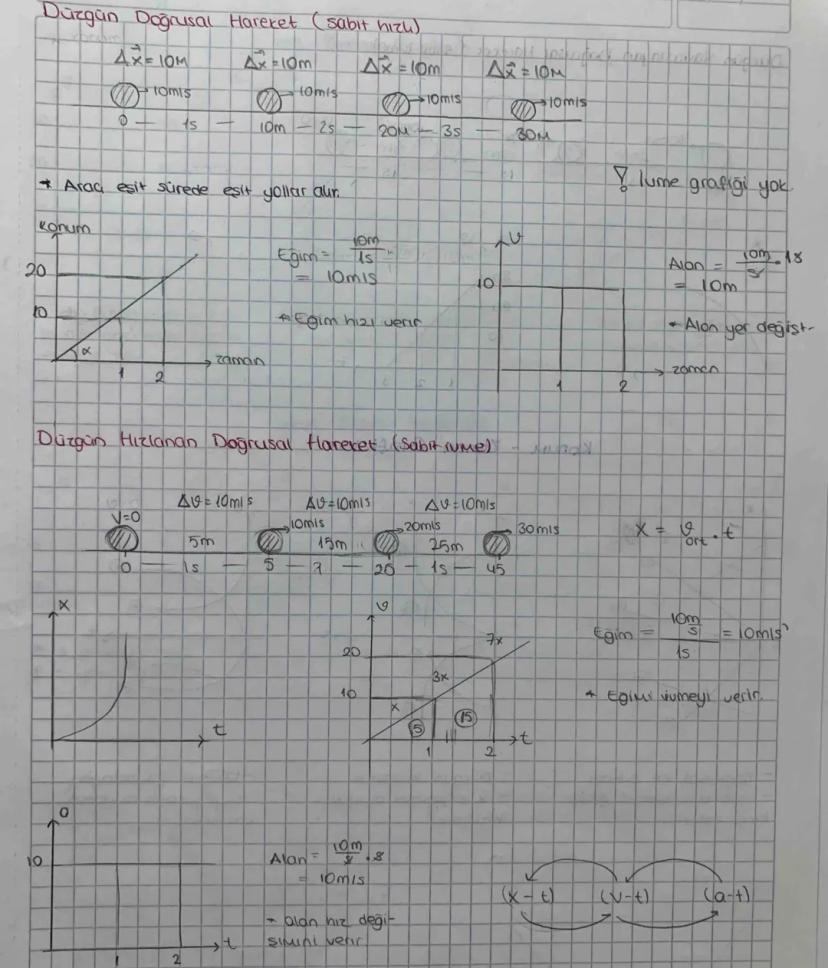 Düzgün Doğrusal Hareket (sabit hızlı)
Δx⃗=10m Δx⃗=10m Δx⃗=10m Δx⃗=10m
→10m/s →10m/s →10m/s →10m/s
0 — 1s — 10m — 2s — 20m — 3s — 30m
* Araç eşit sürede eşit yollar alır.
! İvme grafiği yok
konum
20
10
α
1 2
zaman
Eğim = 10m/1s
= 10m/s
* Eğim hızı verir
v
10
1 2
zaman
Alan = 10m/s · 1s
= 10m
* Alan yer değişt-
Düzgün Hızlanan Doğrusal Hareket (Sabit ivme)
Δv=10m/s Δv=10m/s Δv=10m/s
V=0 →10m/s →20m/s →30m/s
5m 15m 25m
0 — 1s — 5 — 1 — 20 — 1s — 45
x = v ort. t
x
t
v
20
10
7x
3x
x
5 15
1 2
t
Eğim = 10m/s / 1s = 10m/s²
* Eğimi ivmeyi verir.
a
10
1 2
t
Alan = 10m/s · s
= 10m/s
- alan hız deği-
şimini verir
(x-t) (v-t) (a-t)